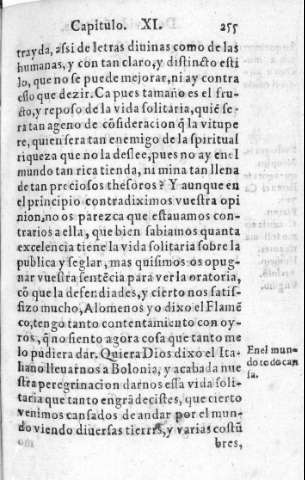 Capitulo. XI. 255
trayda, assi de letras diuinas como de las
humanas, y con tan claro, y distincto esti
lo, que no se puede mejorar, ni ay contra
esso que dezir. Ca pues tamaño es el fru-
cto, y reposo de la vida solitaria, quiē se-
ra tan ageno de cōsideracion q̄ la vitupe
re, quien sera tan enemigo de la spiritual
riqueza que no la dessee, pues no ay en el
mundo tan rica tienda, ni mina tan llena
de tan preciosos thesoros? Y aunque en
el principio contradiximos vuestra opi
nion, no os parezca que estauamos con-
trarios a ella, que bien sabiamos quanta
excelencia tiene la vida solitaria sobre la
publica y seglar, mas quisimos os opug-
nar vuestra sentēcia para ver la oratoria,
cō que la defendiades, y cierto nos satis-
fizo mucho, Alomenos yo dixo el Flamē
co, tengo tanto contentamiento con oy-
ros, q̄ no siento agora cosa que tanto me
lo pudiera dar. Quiera Dios dixo el Ita-
liano lleuarnos a Bolonia, y acabada nue
stra peregrinacion darnos essa vida soli-
taria que tanto engrādecistes, que cierto
venimos cansados de andar por el mun-
do viendo diuersas tierras, y varias costū
bres,
En el mun-
do todo can
sa.